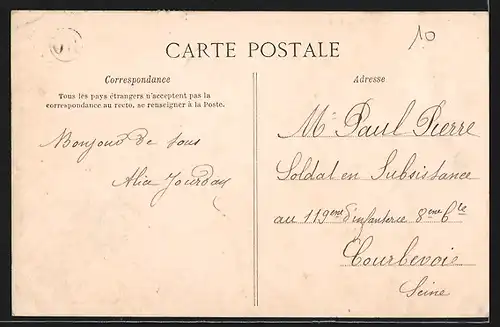 10
CARTE POSTALE
Correspondance
Tous les pays étrangers n'acceptent pas la
correspondance au recto, se renseigner à la Poste.
Bonjour de tous
Alice Jourdan
Adresse
Mr Paul Pierre
Soldat en Subsistance
au 119ème d'infanterie 8ème Cie
Courbevoie
Seine